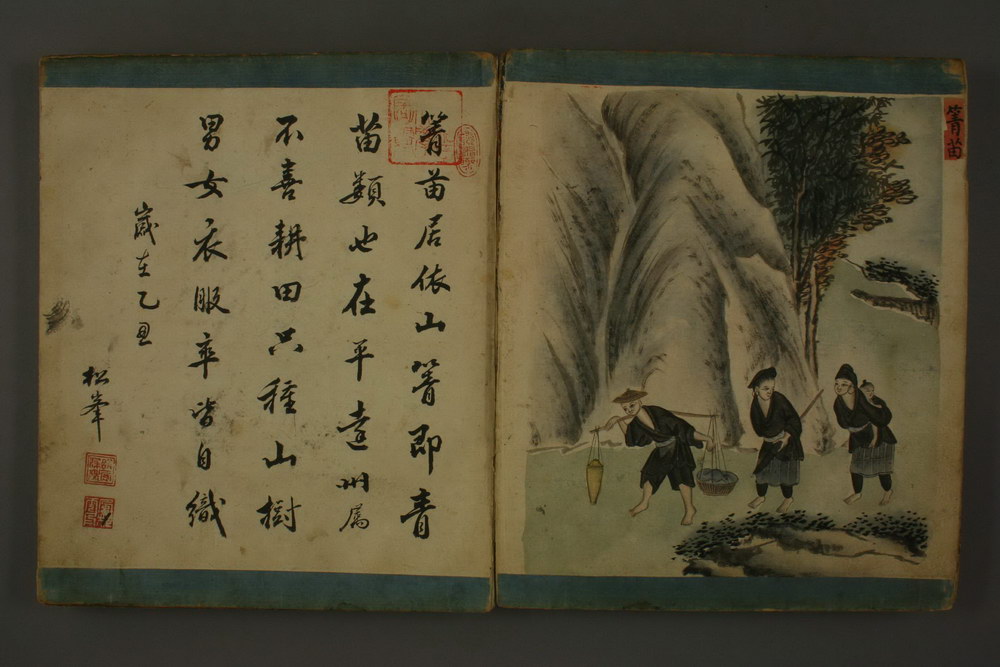 箐苗
箐苗居依山箐即青
苗類也在平遠州属
不喜耕田只種山樹
男女衣服率皆自織
歲在乙丑
松峯